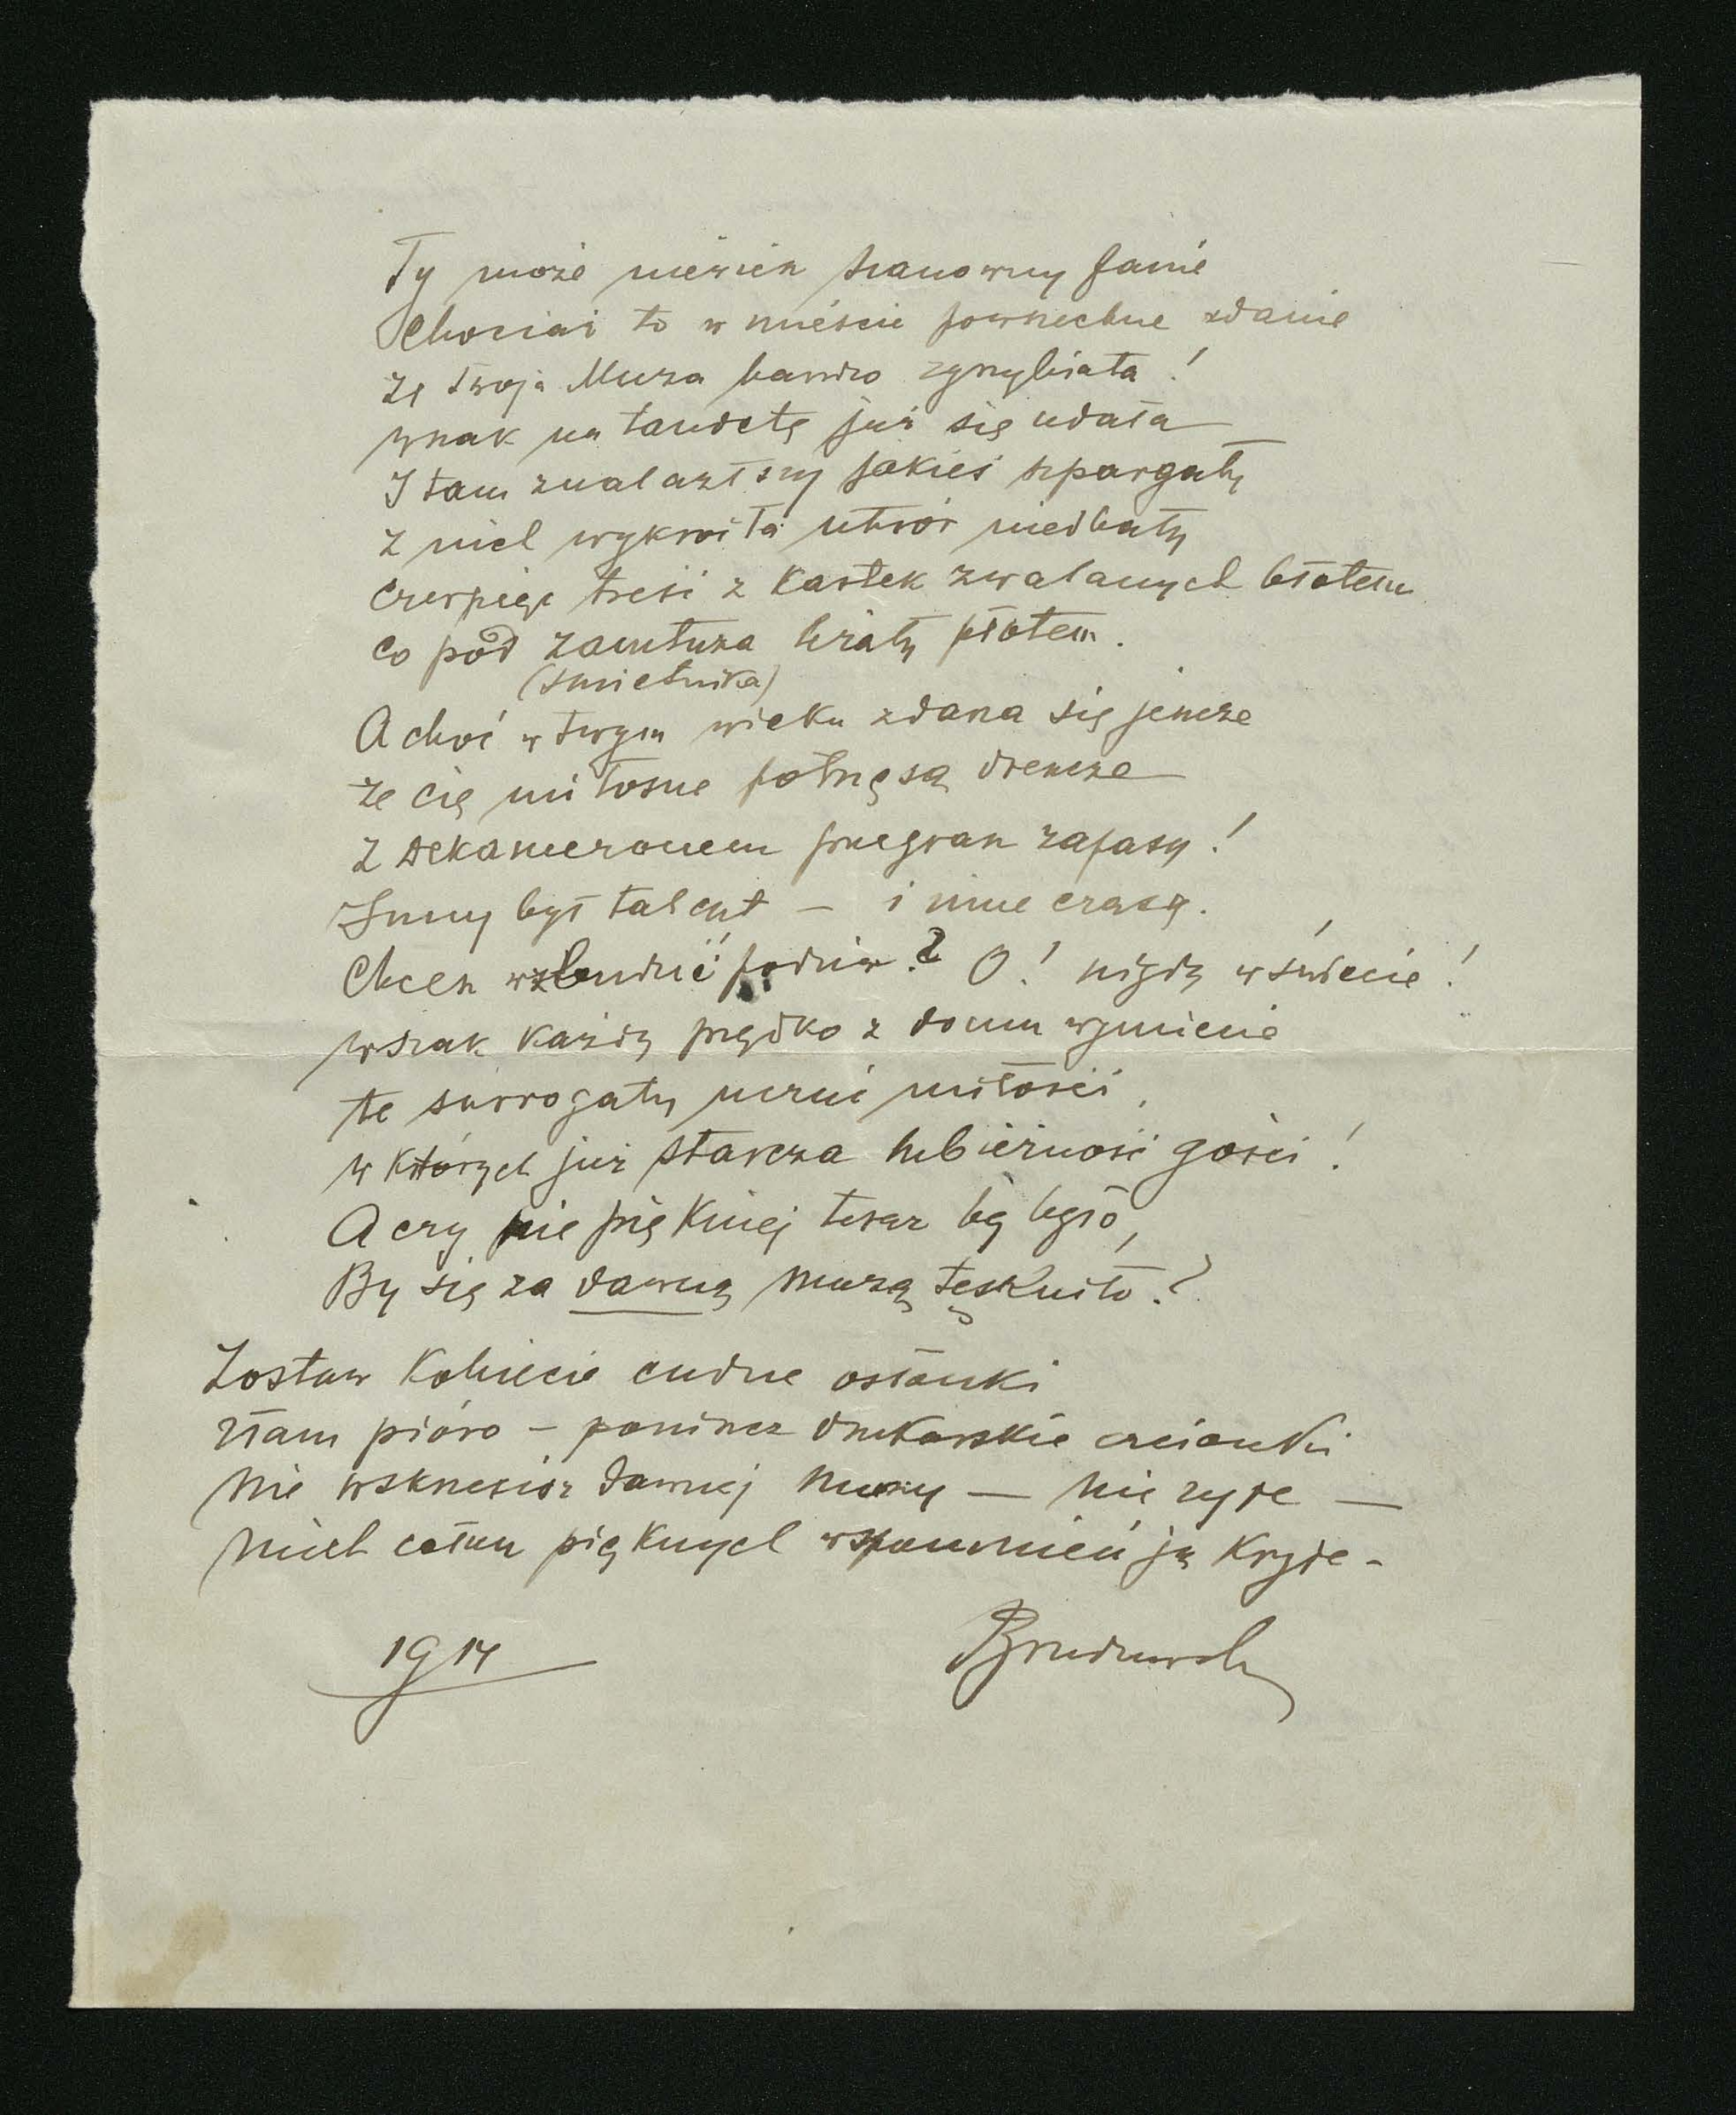 Ty może niewiesz szanowny panie
Chociaż to w mieście powszechne zdanie
że Twoja Muza bardzo zgrzybiała!
wszak na tandetę już się udała
I tam znalazłszy jakieś szpargały
z nich wykroiła utwór niedbały
czerpiąc treść z kartek zwalanych błotem
co pod zamtuza leżały płotem.
(śmietnika)
A choć w twym wieku zdarza się jeszcze
że cię miłosne potrzęsą dreszcze
z Dekameronem przegrasz zapasy!
Inny był talent – i inne czasy.
Chcesz wzbudzić podziw? O! nigdy w świecie!
wszak każdy prędko z domu wymiecie
te surrogaty uczuć miłości,
w których już starcza lubieżność gości!
A czy nie piękniej teraz by było,
By się za dawną Muzą tęskniło?
Zostaw kobiecie cudne osłonki
złam pióro – porzuć drukarskie czcionki
Nie wskrzesisz dawnej Muzy — nie żyje —
Niech całun pięknych wspomnień ją kryje –
1914